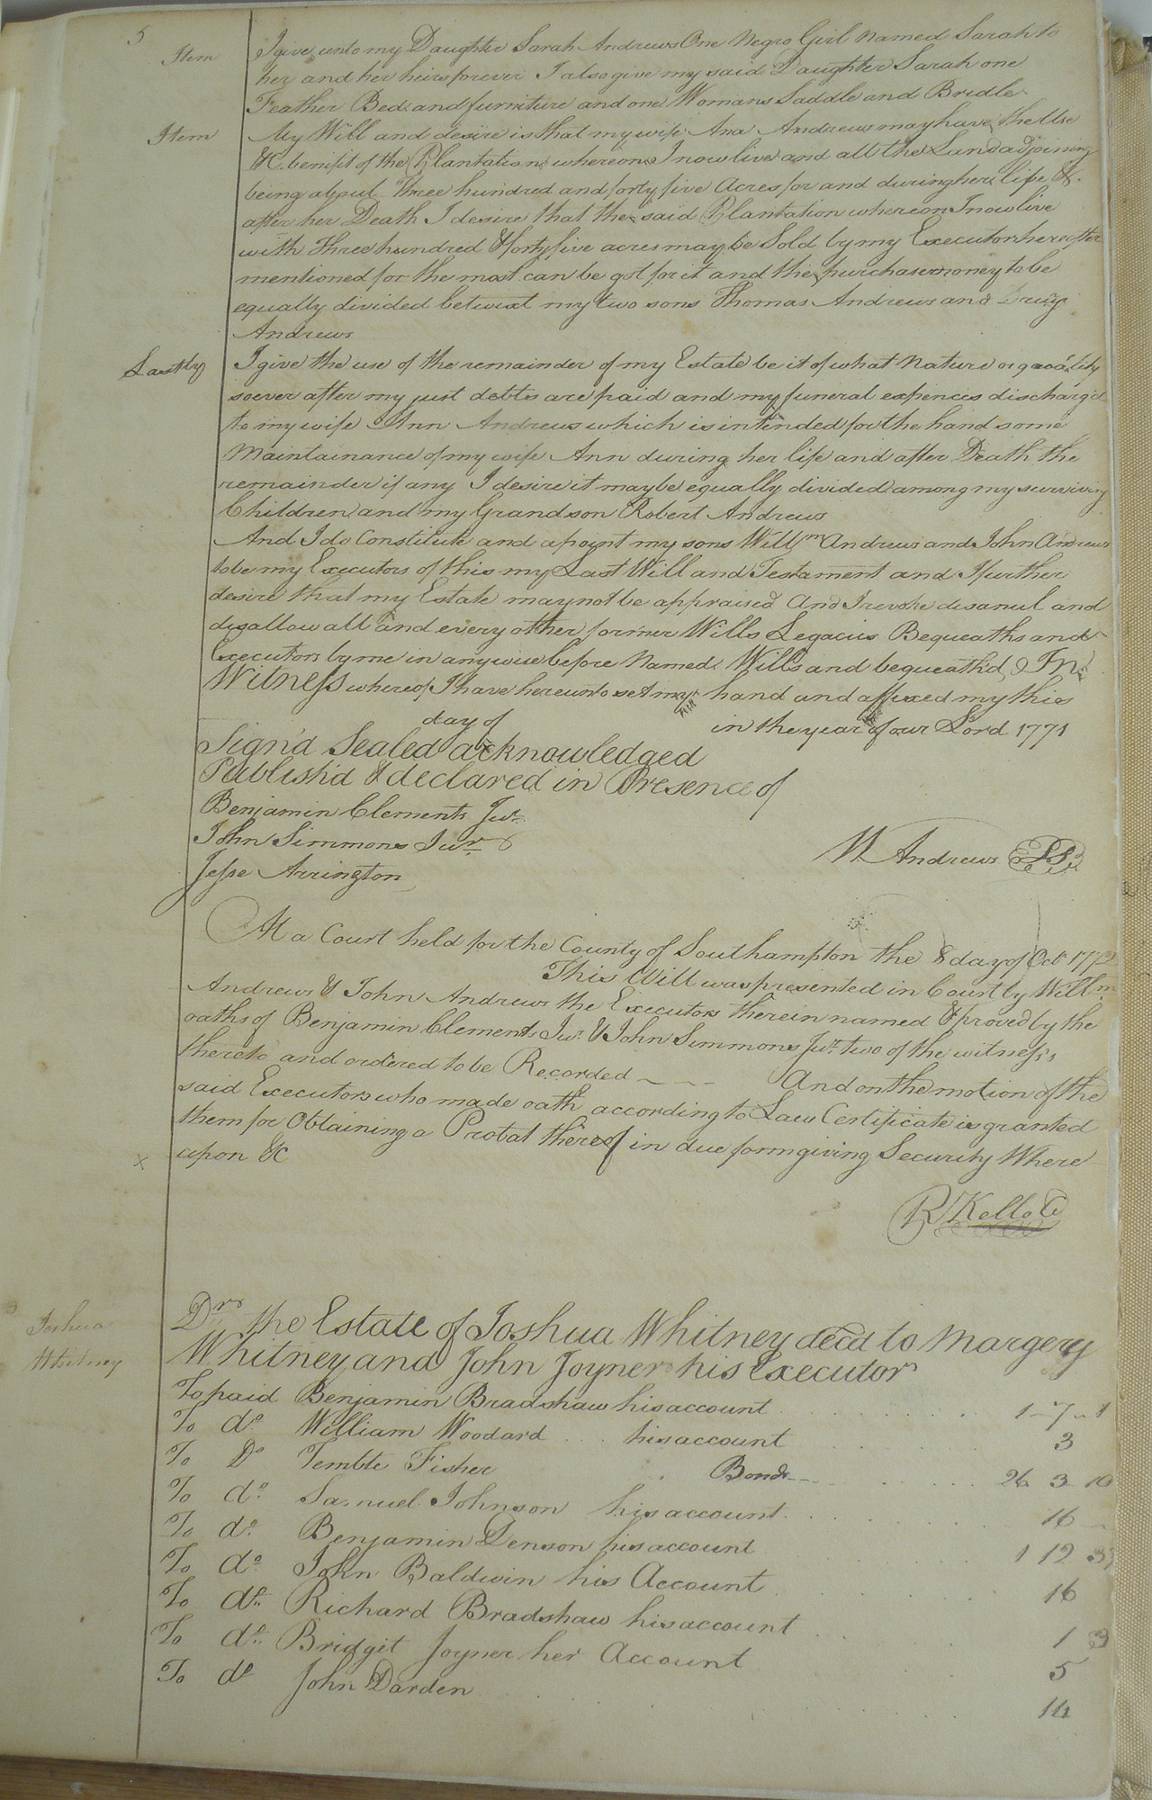 5
Item I give unto my Daughter Sarah Andrews One Negro Girl Named Sarah to
her and her heirs forever I also give my said Daughter Sarah one
Feather Bed and furniture and one Womans Saddle and Bridle
Item My Will and desire is that my wife Ann Andrews may have the Use
&C. benifit of the Plantation whereon I now live and all the Land adjoining
being about Three hundred and forty five Acres for and during her life &
after her Death I desire that the said Plantation whereon I now live
with three hundred & forty five acres may be Sold by my Executors hereafter
mentioned for the most can be got for it and the purchase money to be
equally divided betwixt my two sons Thomas Andrews and Drury
Andrews
Lastly I give the use of the remainder of my Estate be it of what Nature or quality
soever after my just debts are paid and my funeral expences discharg'd
to my wife Ann Andrews which is intended for the hand some
Maintainance of my wife Ann during her life and after Death the
remainder if any I desire it may be equally divided among my surviving
Children and my Grandson Robert Andrews
And I do Constitute and apoint my sons Willm Andrews and John Andrews
to be my Executors of this my Last Will and Testament and I further
desire that my Estate may not be appraised And I revoke disanul and
disallow all and every other former Wills Legacies Bequeaths and
Executors by me in any wise before Named Wills and bequeath'd In
Witness whereof I have hereunto set my hand and affixed my this
day of in the year of our Lord 1771
Sign'd Sealed acknowledged
Publish'd & declared in Presence of
Benjamin Clements Jur.
John Simmons Jur.
Jesse Arrington
W Andrews LS
At a Court held for the County of Southampton the 8 day of Oct 1772
This Will was presented in Court by Willm
Andrews & John Andrews the Executors therein named & proved by the
oaths of Benjamin Clements Jur. & John Simmons Jur. two of the witness's
thereto and ordered to be Recorded And on the motion of the
said Executors who made oath according to Law Certificate is granted
them for Obtaining a Probat thereof in due form giving Security Where
x upon &C
R Kello C
Joshua
Whitney
Dr. the Estate of Joshua Whitney decd to Margery
Whitney and John Joyner his Executor
To paid Benjamin Bradshaw his account 1 - 7 - 1
To do. William Woodard his account 3
To Do Temble Fisher Bond 26 3 10
To do. Samuel Johnson his account 16
To do. Benjamin Denson his account 1 12
To do. John Baldwin his Account 16
To do. Richard Bradshaw his account 1 3
To do. Bridgit Joyner her Account 5
To do John Darden 14